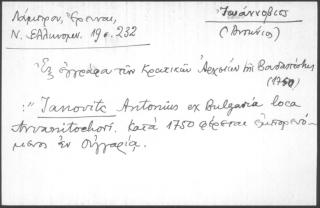 Λάμπρου, Έρευναι,
Ν. Ελληνομν. 19ο. 232
Ἰωάννοβιτς
(Ἀντώνιος)
Ἐξ ἐγγράφων τῶν Κρατικῶν Ἀρχείων τῆς Βουδαπέστης
(1750)
:" Ianovits Antonius ex Bulgaria loco
Arvanitochori. Κατά 1750 φέρεται ἐμπορευό-
μενος ἐν Οὑγγαρίᾳ.